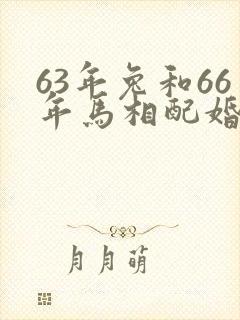 63年兔和66
年馬相配婚
月月萌